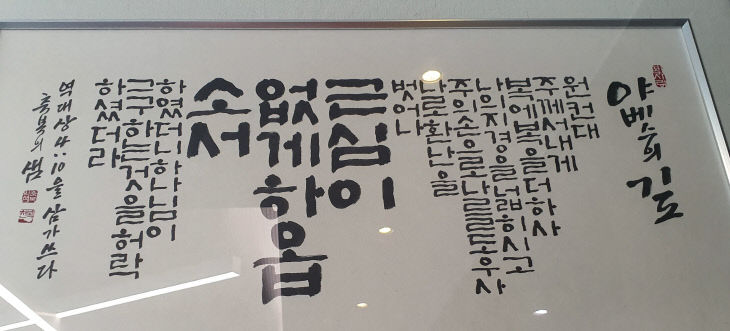 야베스의 기도
원컨대
주께서내게
복에복을더하사
나의지경을넓히시고
주의손으로나를도우사
나로환난을
벗어나
근심이
없게하옵
소서
하였더니하나님이
그구하는것을허락
하셨더라
역대상4:10을 삼가쓰다
샘